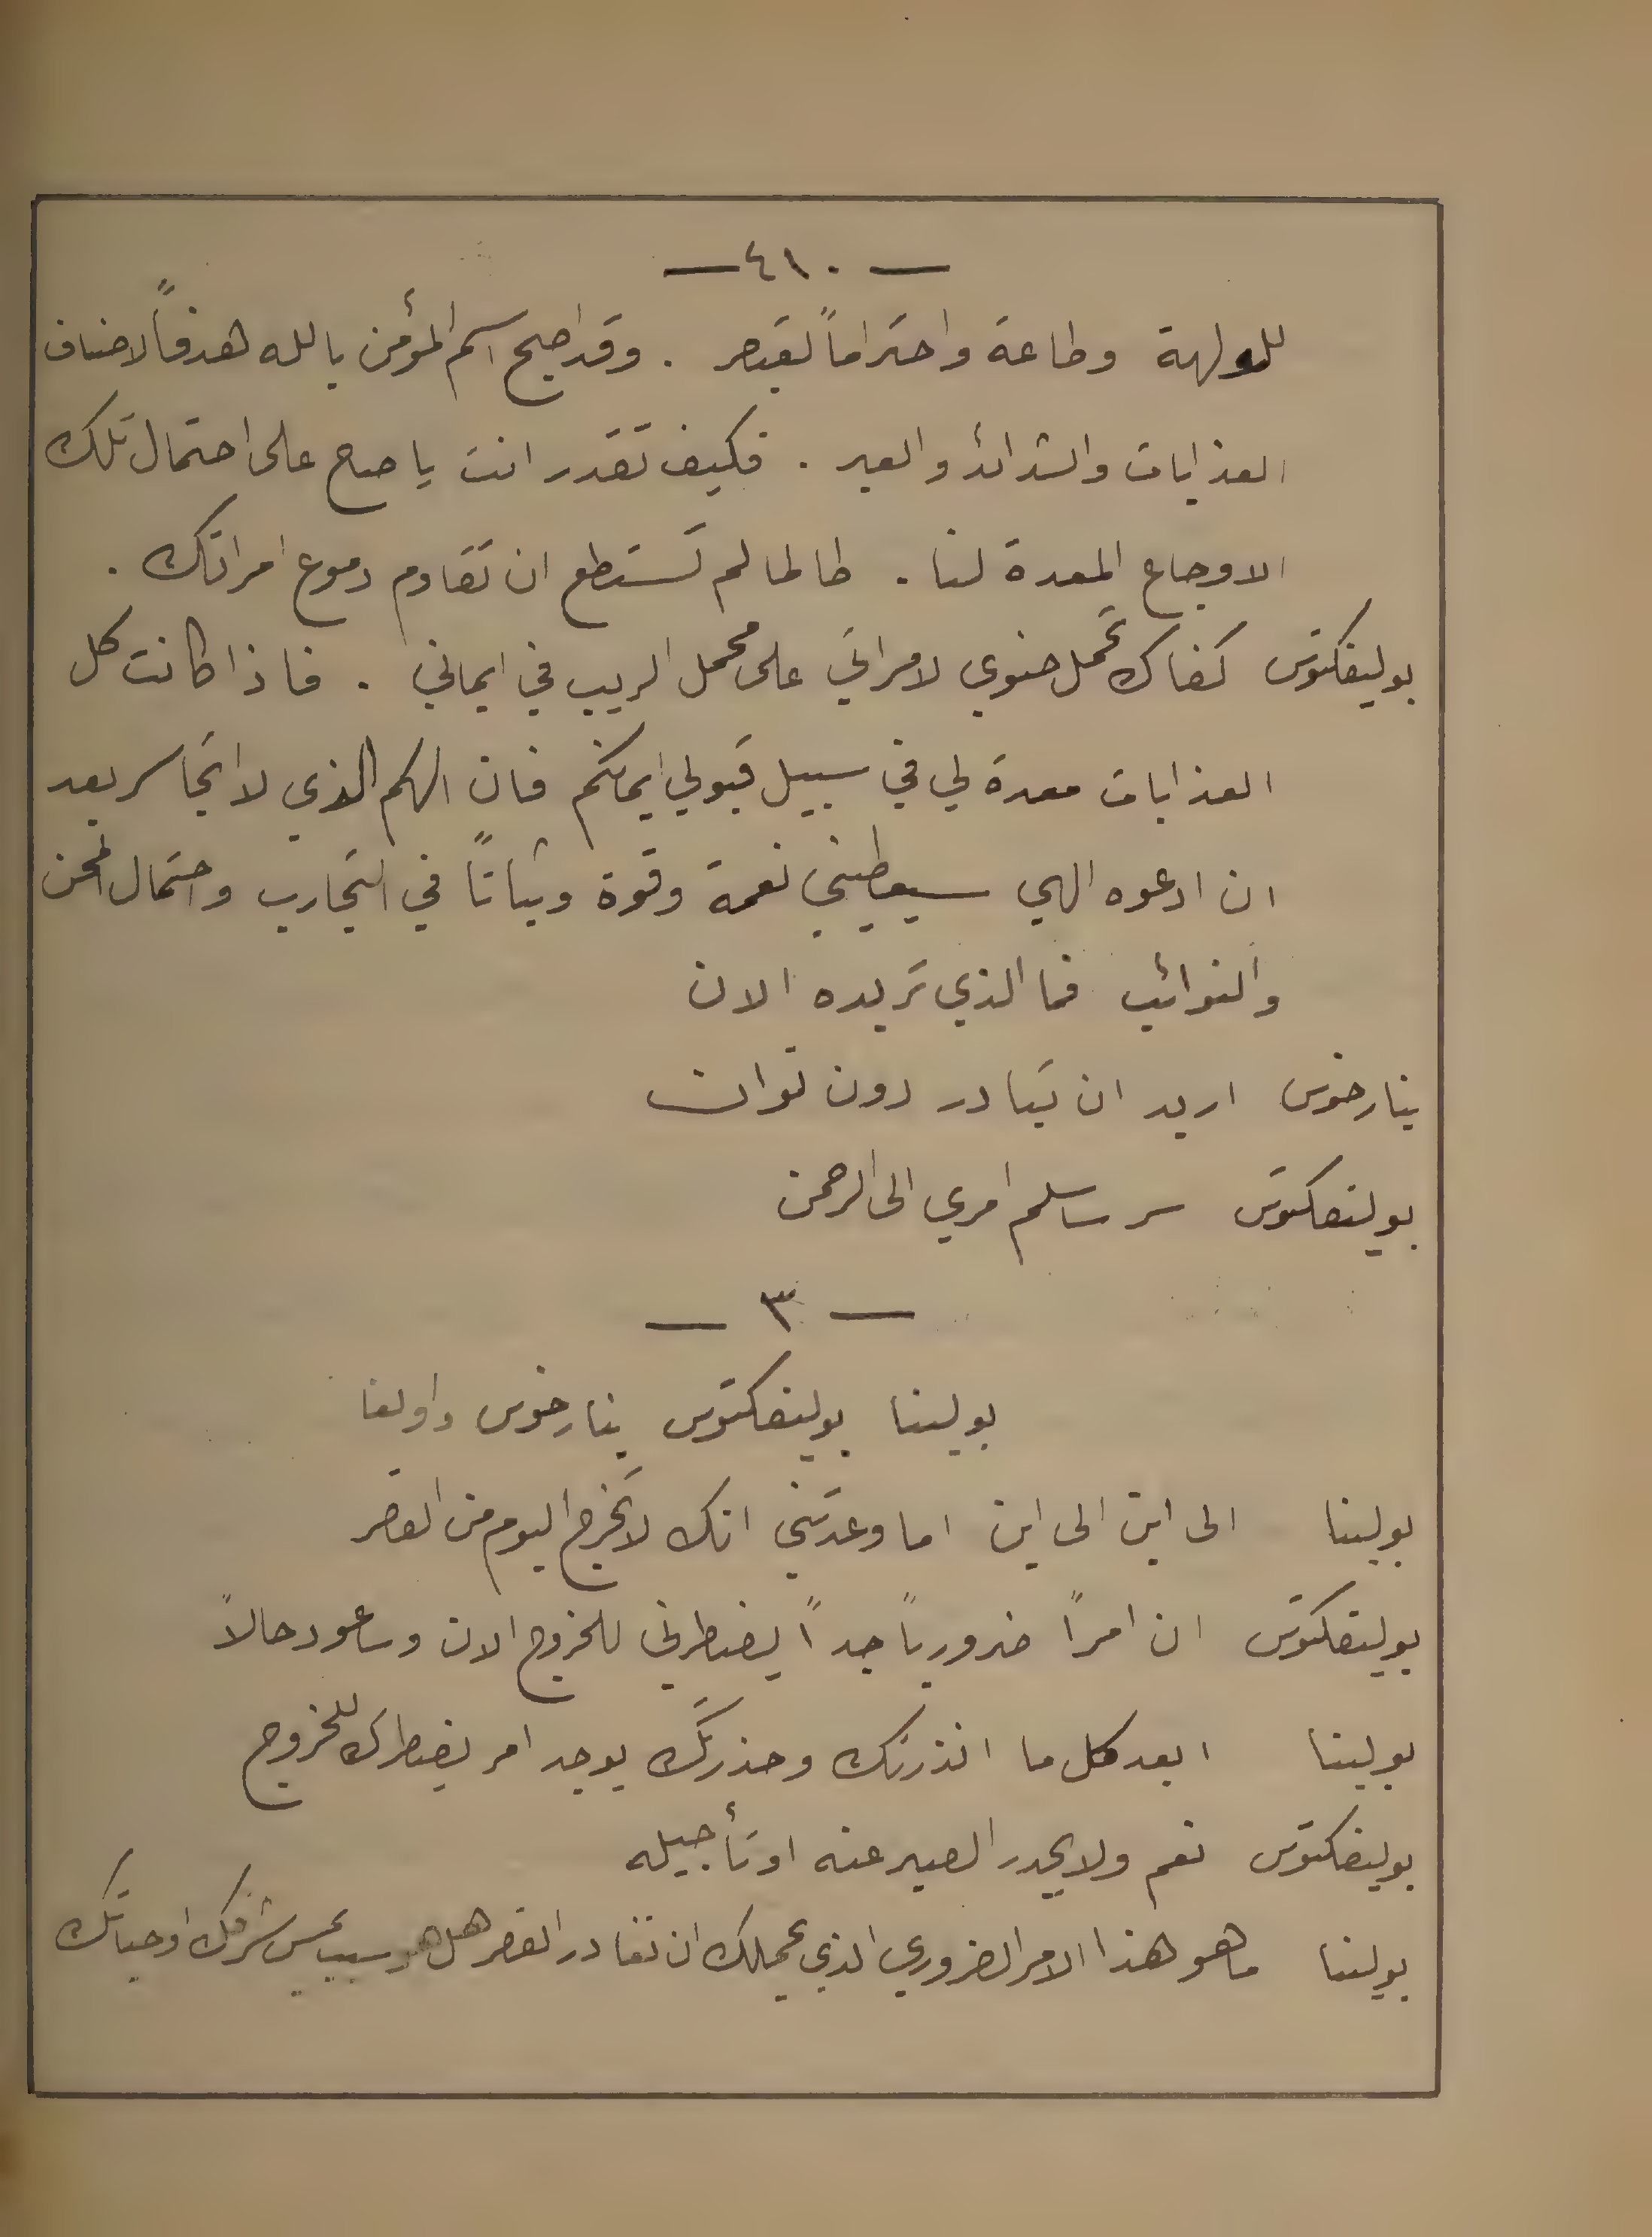 — ٤١٠ —
للولهة وطاعة واحتراماً لقيصر . وقد اصبح اسم المؤمن بالله هدفاً لاصناف
العذابات والشدائد والعبر . فكيف تقدر انت يا صاح على احتمال تلك
الاوجاع المعدة لنا . طالما لم تستطع ان تقاوم دموع امراتك .
بوليفكتوس كفاك تحمل حنوي لامراتي على محمل الريب في ايماني . فاذا كانت كل
العذابات معدة لي في سبيل قبولي ايمانكم فان الهكم الذي لا اتجاسر بعد
ان ادعوه الهي سيعطيني نعمة وقوة وثباتاً في التجارب واحتمال المحن
والنوائب فما الذي تريده الان
ينارخوس اريد ان تبادر دون توان
بوليفكتوس سر ساسلم امري الى الرحمن
— ٣ —
بولينا بوليفكتوس ينارخوس واولفا
بولينا الى اين الى اين اما وعدتني انك لا تخرج اليوم من القصر
بوليفكتوس ان امراً ضرورياً جداً يضطرني للخروج الان وساعود حالاً
بولينا ابعد كل ما انذرتك وحذرتك يوجد امر يضطرك للخروج
بوليفكتوس نعم ولا يجدر الصبر عنه او تأجيله
بولينا ما هو هذا الامر الضروري الذي يحملك ان تغادر القصر هل هو سبب يمس شرفك او حياتك